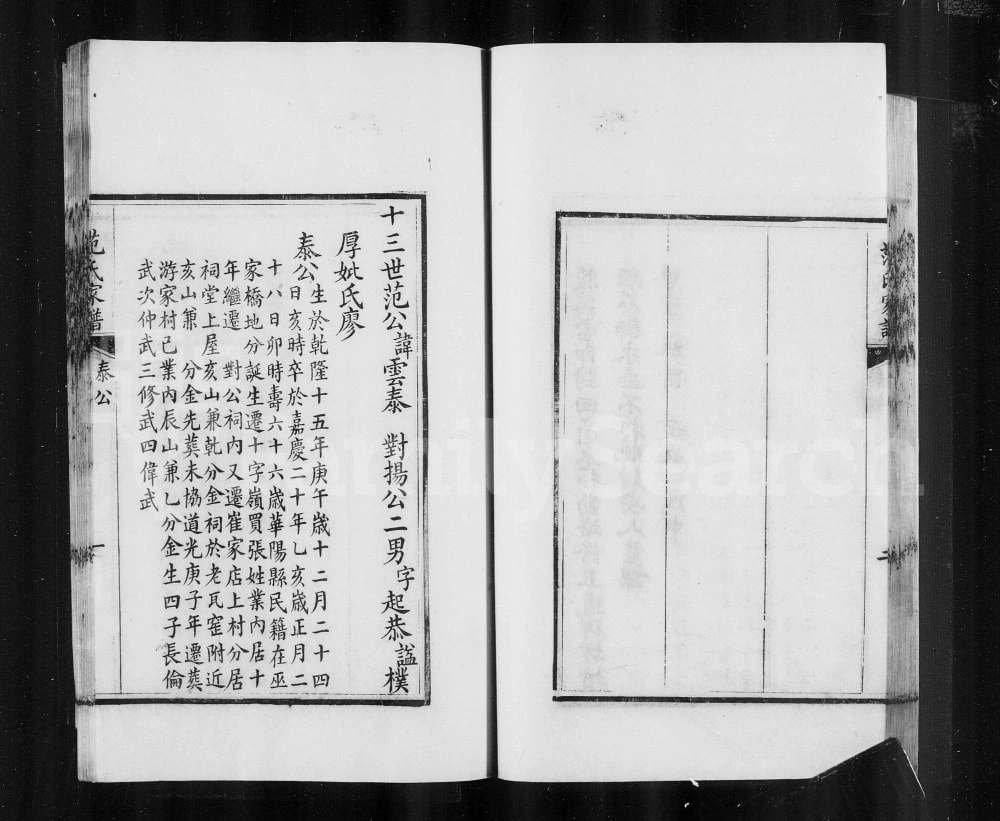 范氏家譜
二
十三世范公諱雲泰 對揚公二男字起恭諡樸
厚妣氏廖
泰公生於乾隆十五年庚午歲十二月二十四
日亥時卒於嘉慶二十年乙亥歲正月二
十八日卯時壽六十六歲華陽縣民籍在巫
家橋地分誕生遷十字嶺買張姓業內居十
年繼遷 對公祠內又遷崔家店上村分居
祠堂上屋亥山兼乾分金祠於老瓦窑附近
亥山兼 分金先葬未協道光庚子年遷葬
游家村已業內辰山兼乙分金生四子長倫
武次仲武三修武四偉武
范氏家譜
泰公
一
FamilySearch